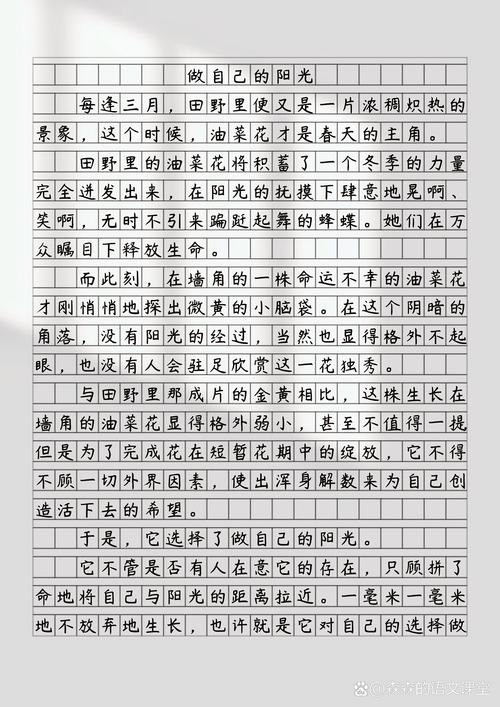 做自己的阳光
每逢三月，田野里便又是一片浓稠炽热的
景象，这个时候，油菜花才是春天的主角。
田野里的油菜花将积蓄了一个冬季的力量
完全迸发出来，在阳光的抚摸下肆意地晃啊、
笑啊，无时不引来蹁跹起舞的蜂蝶。她们在万
众瞩目下释放生命。
而此刻，在墙角的一株命运不幸的油菜花
才刚悄悄地探出微黄的小脑袋。在这个阴暗的
角落，没有阳光的经过，当然也显得格外不起
眼，也没有人会驻足欣赏这一花独秀。
与田野里那成片的金黄相比，这株生长在
墙角的油菜花显得格外弱小，甚至不值得一提
但是为了完成花在短暂花期中的绽放，它不得
不顾一切外界因素，使出浑身解数来为自己创
造活下去的希望。
于是，它选择了做自己的阳光。
它不管是否有人在意它的存在，只顾拼了
命地将自己与阳光的距离拉近。一毫米一毫米
地不放弃地生长，也许就是它对自己的选择做
Bai du 森森的语文课堂